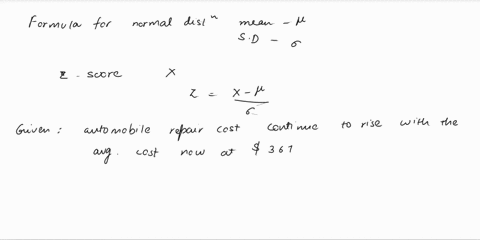 Formula for normal distⁿ mean - μ
S.D - σ
z - score X
z = X - μ / σ
Given : automobile repair cost continue to rise with the
avg. cost now at $ 367